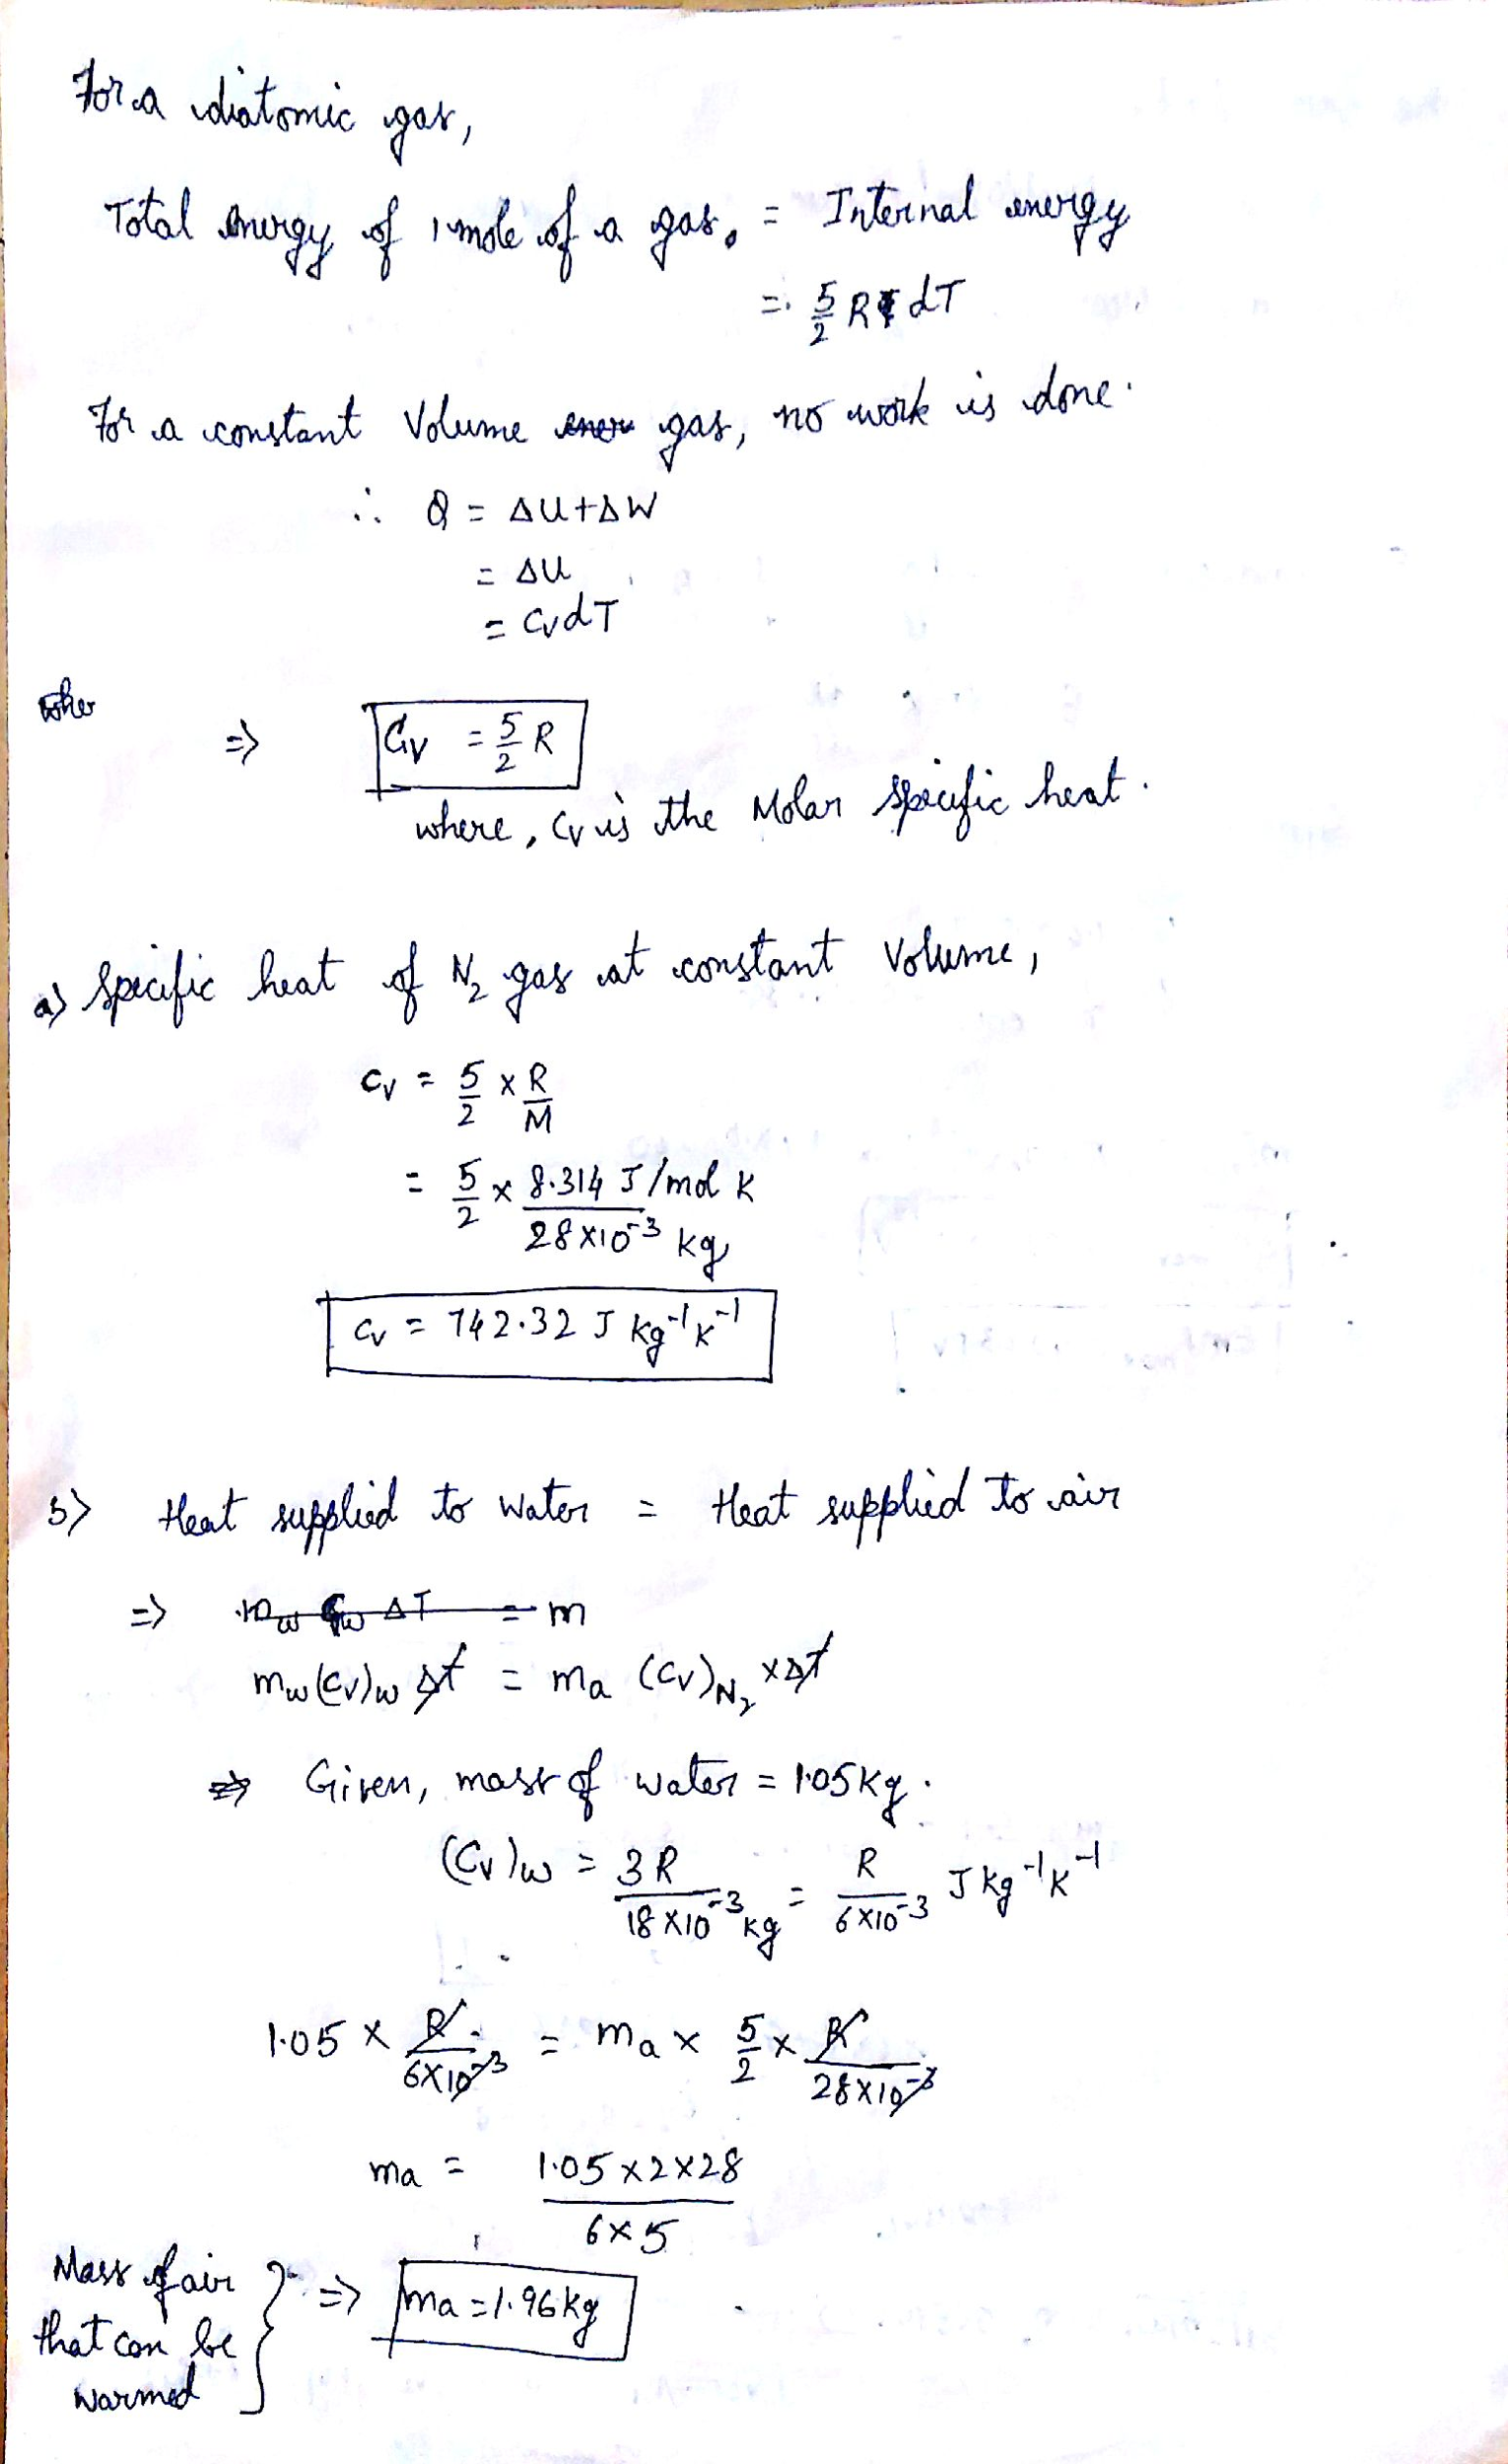 For a diatomic gas,
Total energy of 1 mole of a gas, = Internal energy
= 5/2 R dT
For a constant Volume gas, no work is done.
∴ Q = ΔU+ΔW
= ΔU
= CvdT
wher
⇒ Cv = 5/2 R
where, Cv is the Molar specific heat.
a) Specific heat of N₂ gas at constant Volume,
Cv = 5/2 × R/M
= 5/2 × 8.314 J/mol K / 28×10⁻³ kg
Cv = 742.32 J kg⁻¹K⁻¹
b) Heat supplied to water = Heat supplied to air
⇒ mw Cw ΔT = m
mw(Cv)w Δt = ma (Cv)N₂ ×ΔT
⇒ Given, mass of water = 1.05kg.
(Cv)w = 3R / 18×10⁻³ kg = R / 6×10⁻³ J kg⁻¹K⁻¹
1.05 × R / 6×10⁻³ = ma × 5/2 × R / 28×10⁻³
ma = 1.05×2×28 / 6×5
Mass of air
that can be
warmed } ⇒ ma = 1.96kg